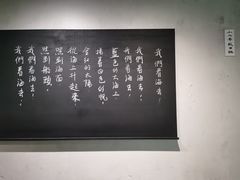 我們看海去！
我們看海去，
我們看海去！
藍色的大海上，
揚着白色的帆。
金紅的太陽，
從海上升起來，
照到海面
照到船頭。
我們看海去，
我們看海去！